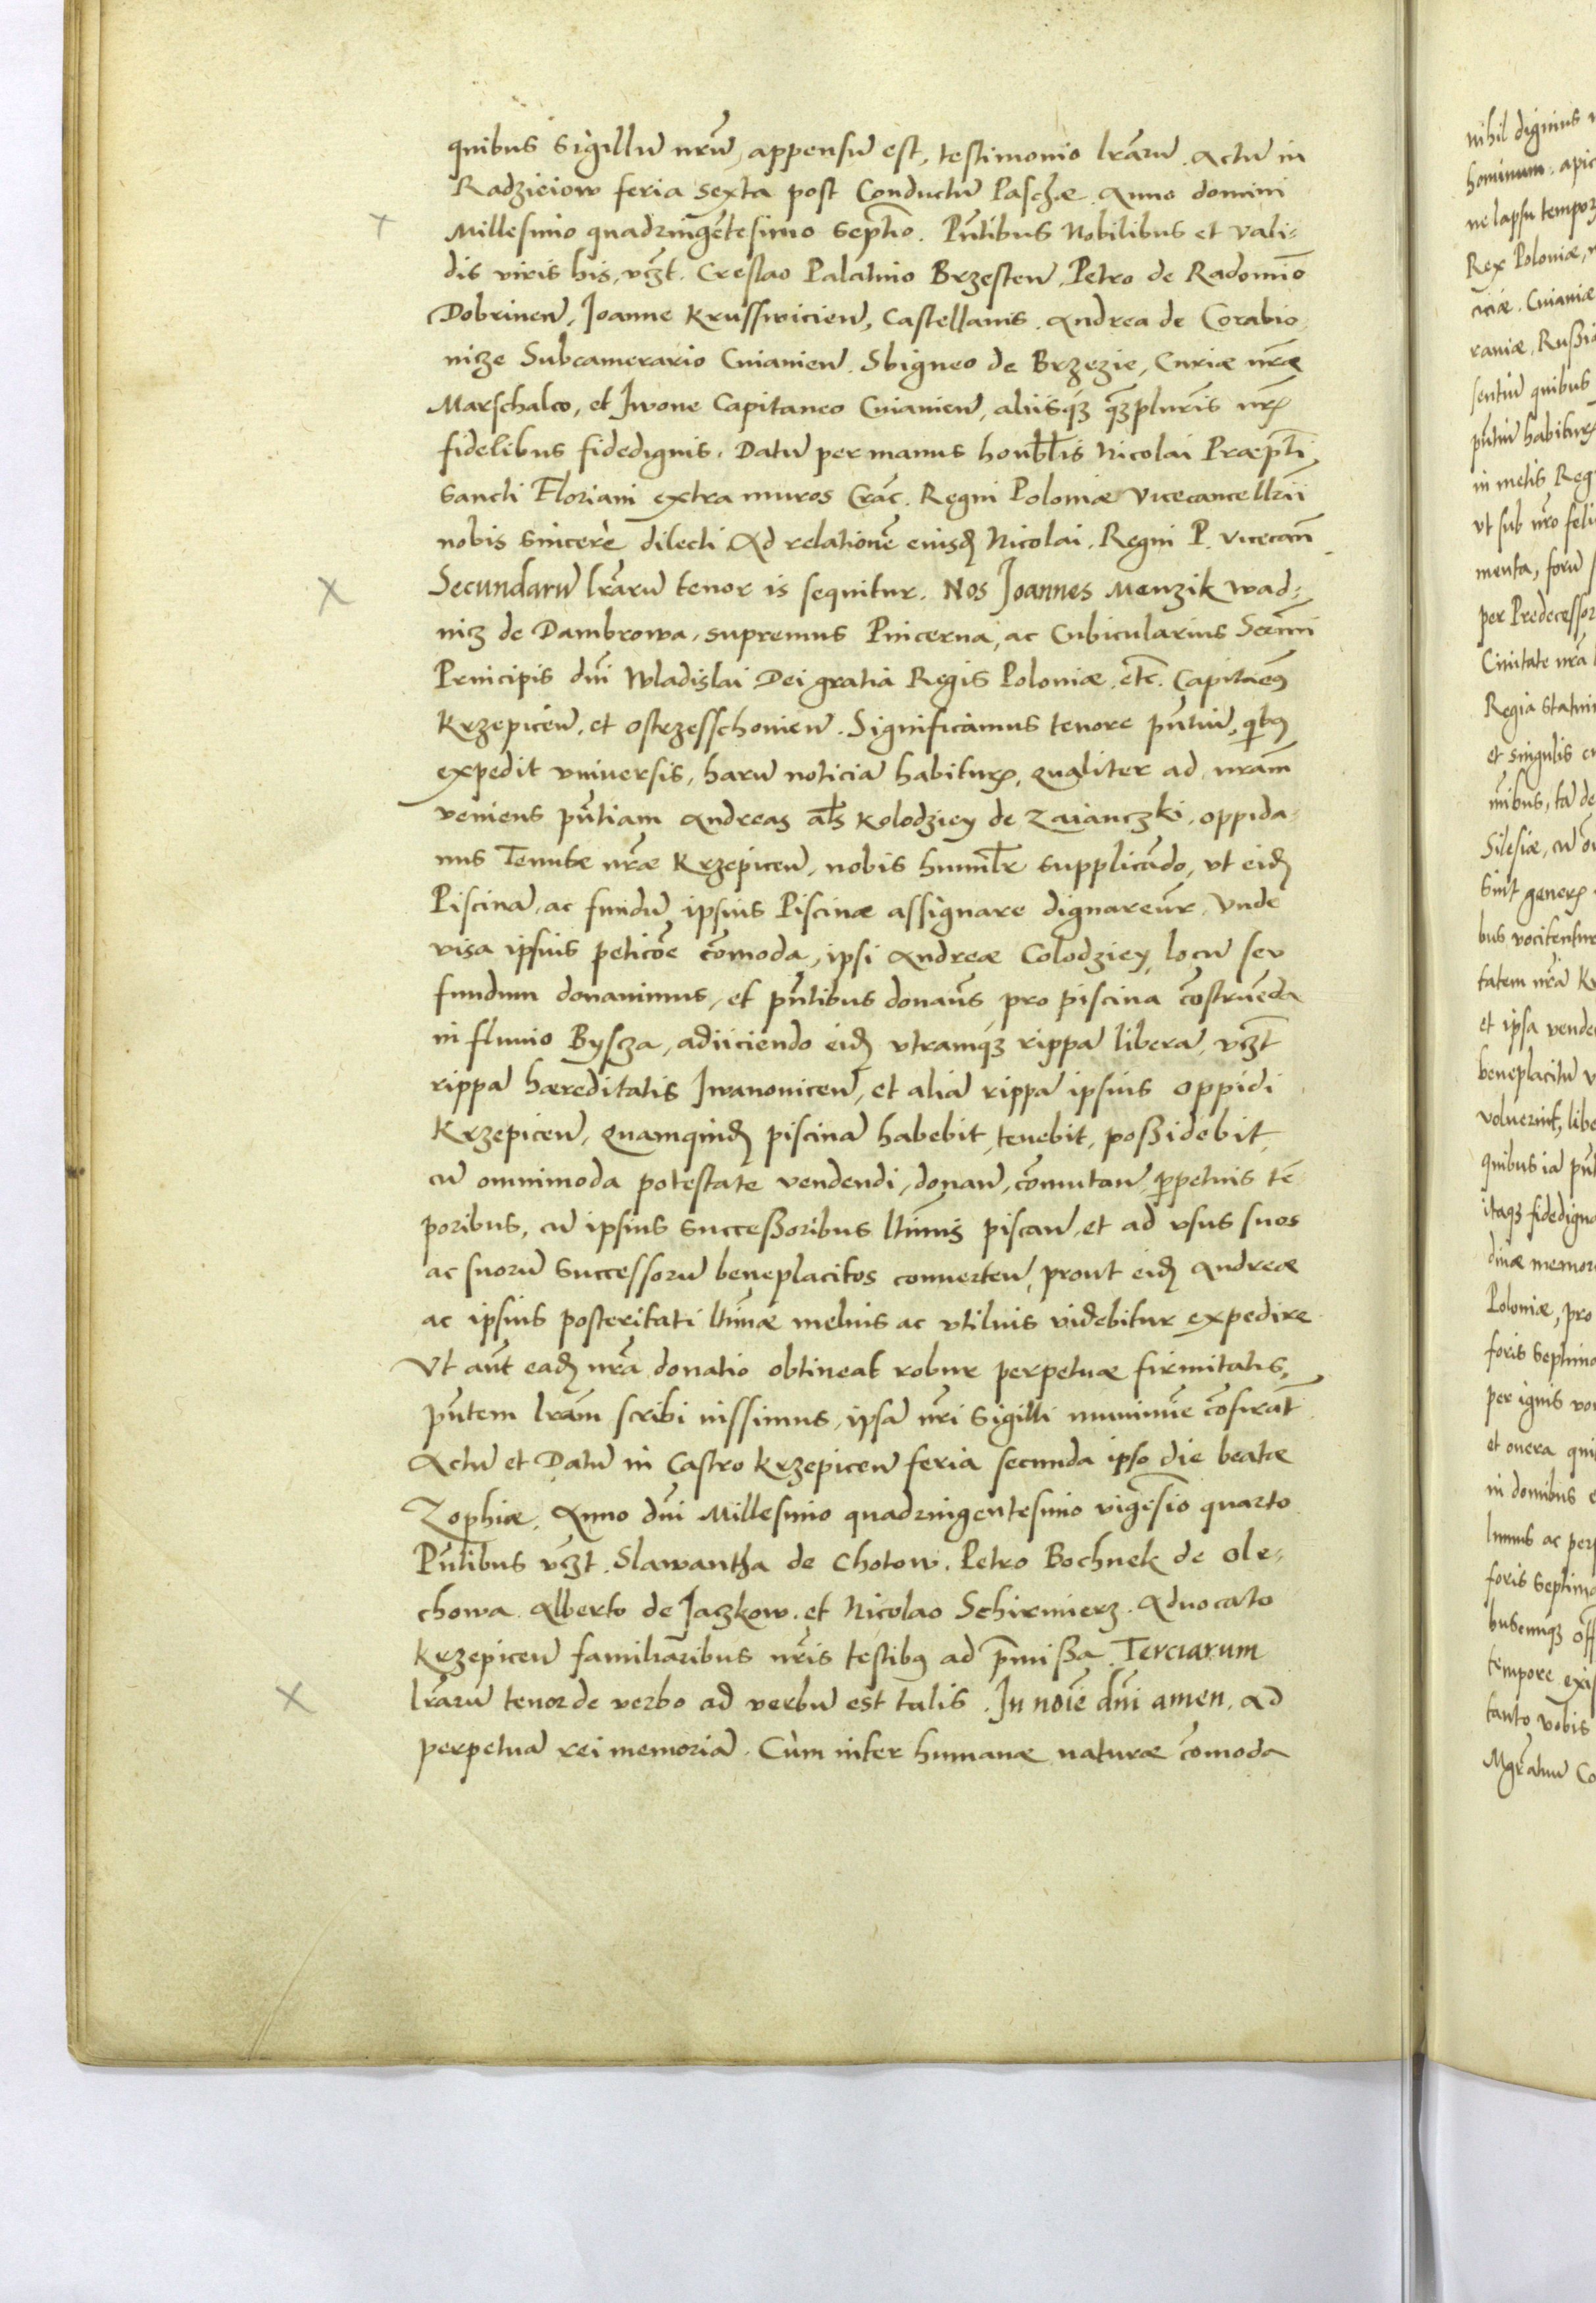 quibus sigillū nrū, appensū est, testimonio lrārū. Actū in
Radzieiow feria sexta post Conductū Paschæ. Anno domini
Millesimo quadringētesimo septīo. Pn̄tibus Nobilibus et vali-
dis viris his, vczt. Creslao Palatino Brzesten̄, Petro de Radomino
Dobrinen̄, Joanne Krusswicien̄, Castellanis. Andrea de Corabio
nicze Subcamerario Cuiauien̄. Sbigneo de Brzezie, Curiæ nræ
Marschalco, et Jwone Capitaneo Cuiauien̄, aliisq3 q̄3pluris nrꝭ
fidelibus fidedignis. Datū per manus honobłis Nicolai Præpti
Sancti Floriani extra muros Crac. Regni Poloniæ vicecancellrii
nobis sincerè dilecti Ad relationē eiusd Nicolai. Regni P. vicecan̄
Secundarū lrārū tenor is sequitur. Nos Joannes Menzik wad-
nicz de Dambrowa, supremus Pincerna, ac Cubicularius Serm̄i
Principis dn̄i Wladislai Dei gratia Regis Poloniæ. etc̄. Capitaeꝰ
Krzepicen̄, et ostrzesschouien̄. Significamus tenore pn̄tiū, qibꝰ
expedit vniuersis, harū noticiā habiturꝭ, qualiter ad nrām
veniens pn̄tiam Andreas als Kolodziey de Zaianczki, oppida-
nus Tenutæ nræ Krzepicen̄, nobis humilr supplicādo, vt eid
Piscinā, ac fundū ipsius Piscinæ assignare dignareūr. Vnde
visa ipsius peticōe cōmoda, ipsi Andreæ Colodziey, locū seu
fundum donauimus, et pn̄tibus donaūs pro piscina cōstruēda
in fluuio Bysza, adiiciendo eid vtramq3 rippā liberā, vczt
rippā hæreditatis Jwanouicen̄, et aliā rippā ipsius oppidi
Krzepicen̄, quamquid piscinā habebit, tenebit, poßidebit,
cū omnimoda potestate vendendi, donan̄, cōmutan̄, ꝑpetuis tē-
poribus, cū ipsius succeßoribus ltimis piscan̄, et ad vsus suos
ac suorū successorū beneplacitos conuerten̄, prout eid Andreæ
ac ipsius posteritati ltimæ melius ac vtilius videbitur expedire
Vt aūt ead nrā donatio obtineat robur perpetuæ firmitatis,
pn̄tem lrām scribi iussimus, ipsā nri sigilli munimīe cōfirāt
Actū et Datū in Castro Krzepicen̄ feria secunda ipso die beatæ
Zophiæ. Anno dn̄i Millesimo quadringentesimo vigēsio quarto
Pn̄tibus vczt. Slawantha de Chotow. Petro Bochnek de ole-
chowa. Alberto de Jaczkow. et Nicolao Schirmierz. Aduocato
Krzepicen̄ familiāribus nris testibꝰ ad p̄mißa. Terciarum
lrārū tenor de verbo ad verbū est talis. In noīe dn̄i amen. ad
perpetuā rei memoriā. Cùm inter humanæ naturæ cōmoda
nihil dignius
hominum. apic
ne lapsu tempor
Rex Poloniæ,
ciæ. Cuiauiæ
raniæ, Rußiæ
sentiū quibus
pn̄tiū habiturꝭ
in metis Reg
vt sub nro feli
menta, forū
per Predecessor
Ciuitate nrā
Regia statui
et singulis
Silesiæ, cū
sint generꝭ
bus vocitentur
tatem nrā Kr
et ipsa vende
beneplacitū v
voluerint, libe
quibus iā pn̄t
itaq3 fidedigna
diuæ memor
Poloniæ, pro
foris septimo
per ignis
et onera qui
in domibus
limus ac perp
foris septima
buscunq3 off
tempore exis
tanto vobis